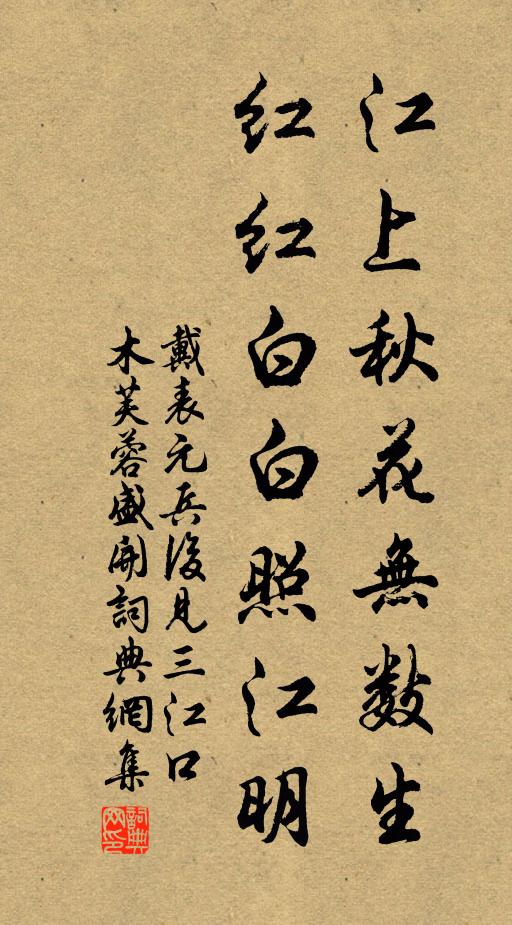 江上秋花無數生
紅紅白白照江明
戴表元兵後見三江口
木芙蓉盛開詞典網集
詞典
网印